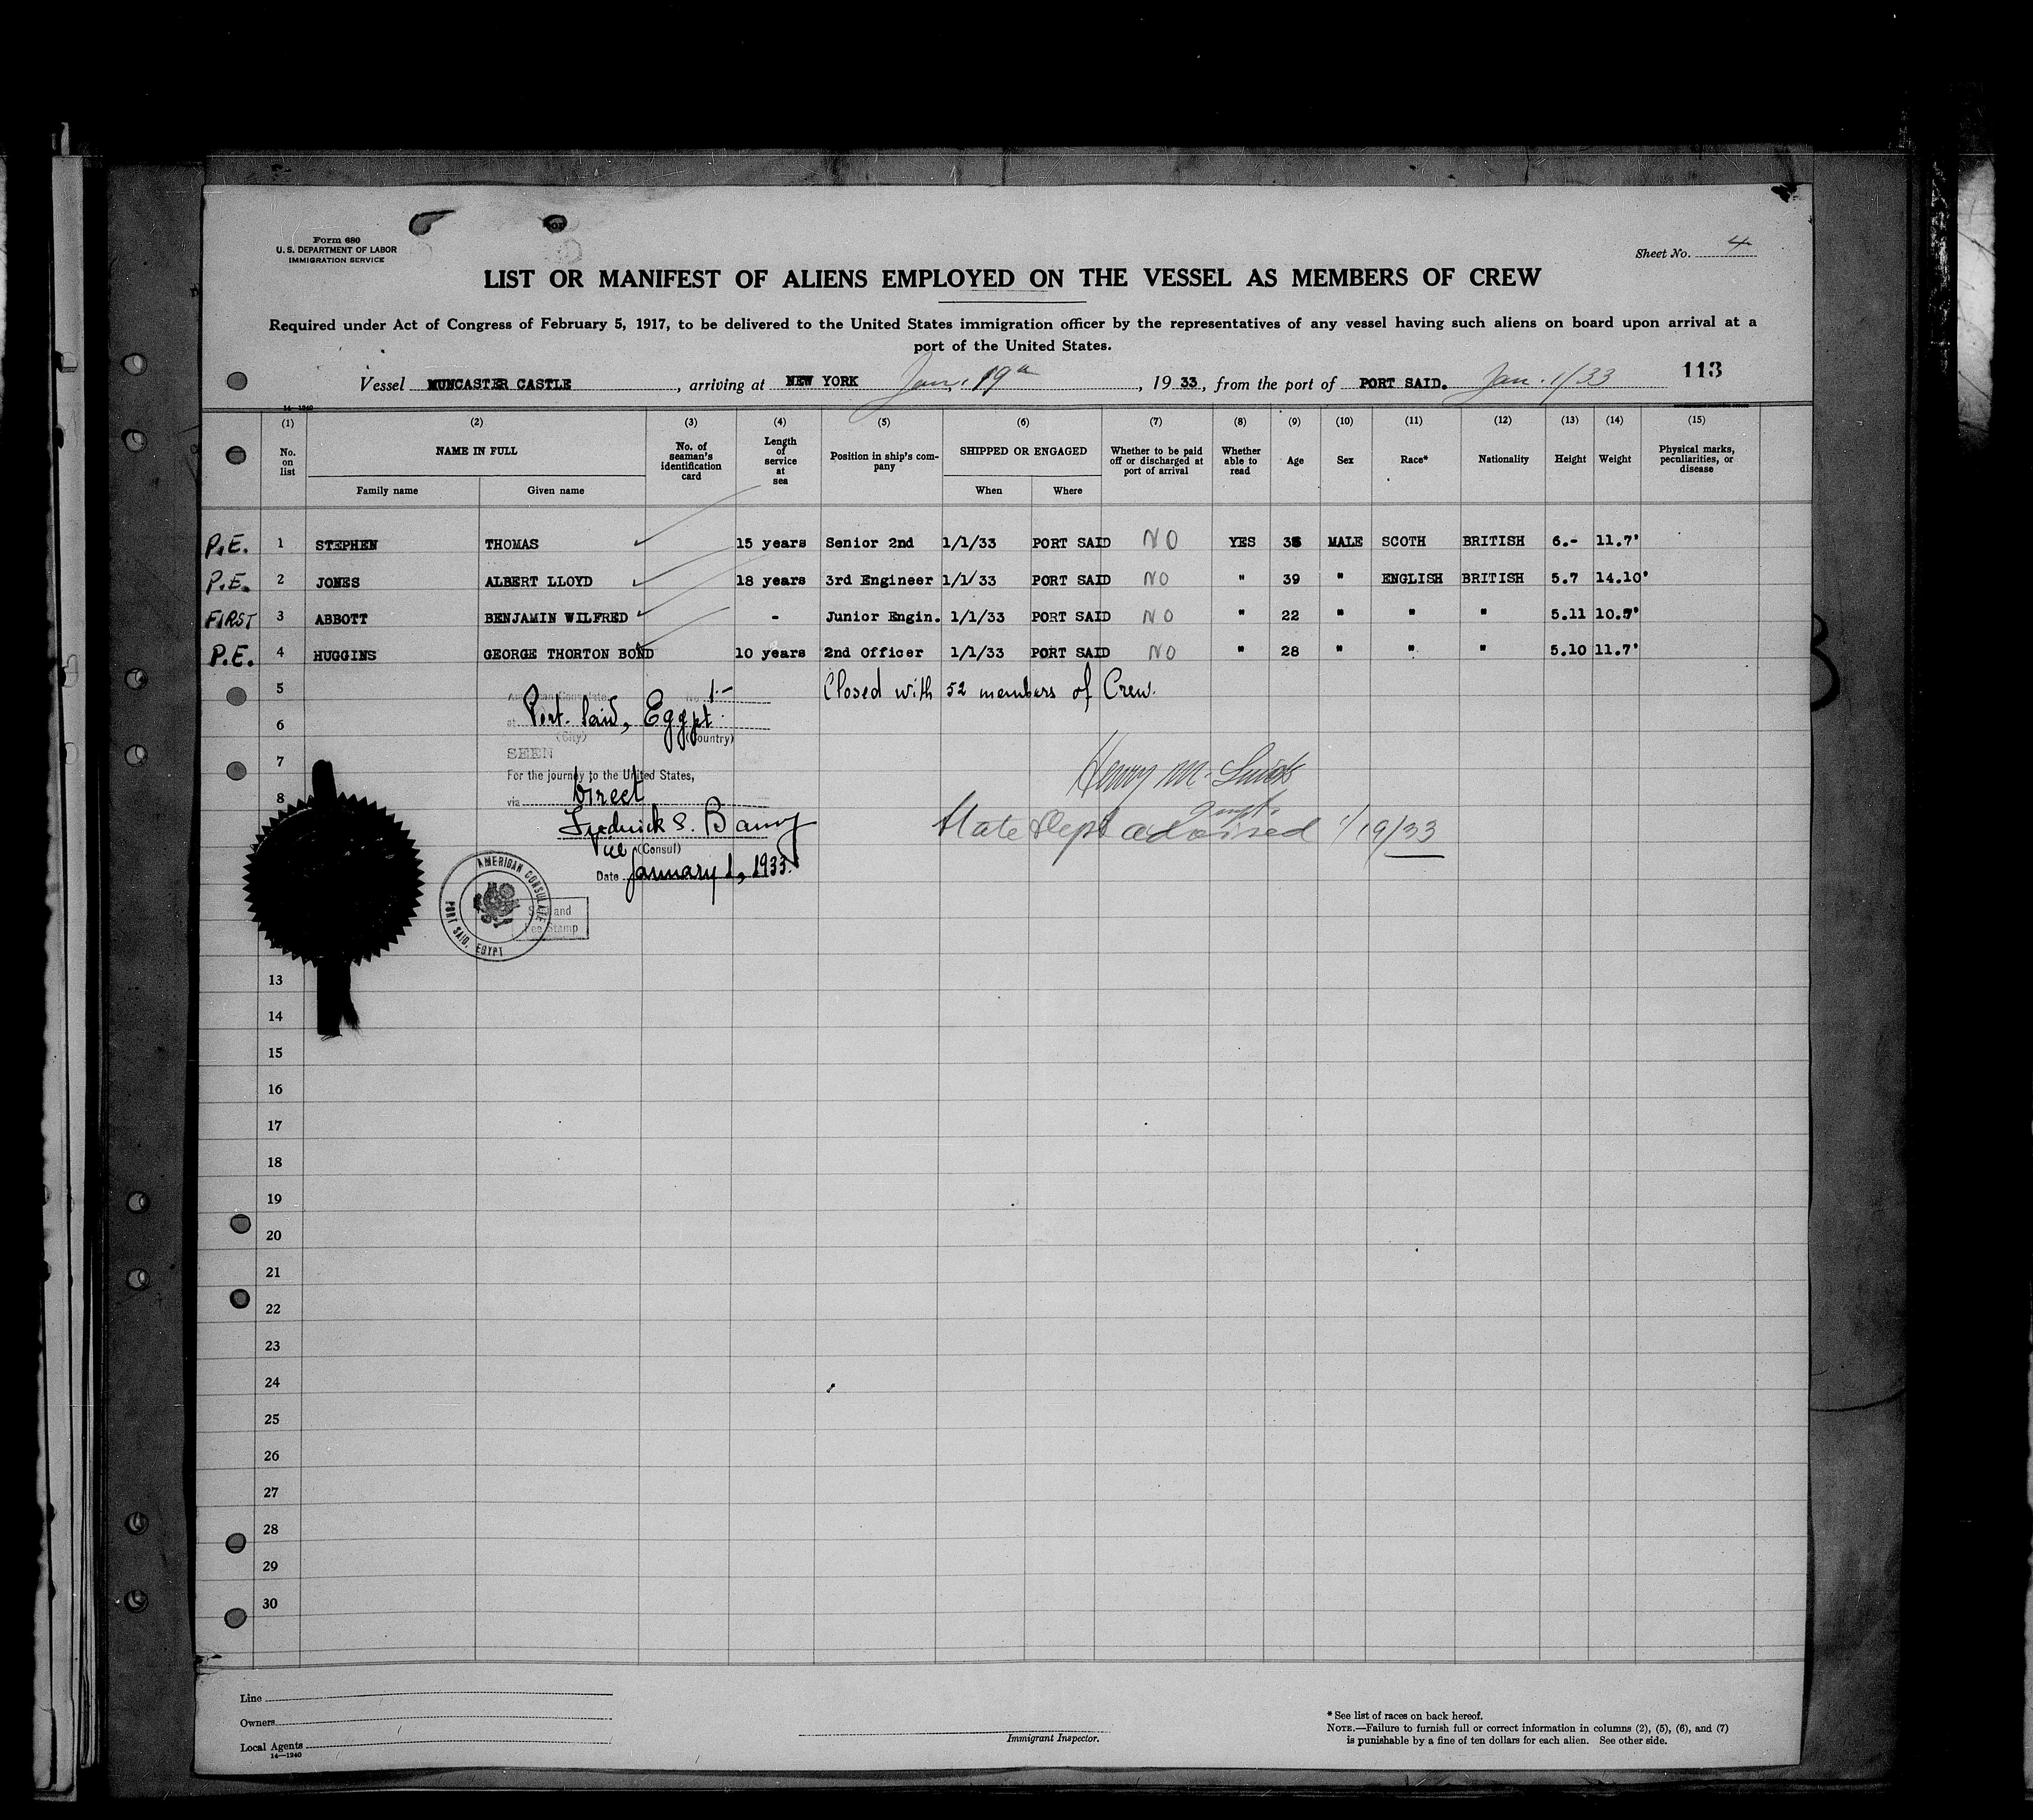 Form 680
U. S. DEPARTMENT OF LABOR
IMMIGRATION SERVICE
Sheet No. 4
LIST OR MANIFEST OF ALIENS EMPLOYED ON THE VESSEL AS MEMBERS OF CREW
Required under Act of Congress of February 5, 1917, to be delivered to the United States immigration officer by the representatives of any vessel having such aliens on board upon arrival at a
port of the United States.
Vessel MUNCASTER CASTLE, arriving at NEW YORK Jan. 19, 1933, from the port of PORT SAID. Jan. 1/33 113
14—1240
(1) (2) (3) (4) (5) (6) (7) (8) (9) (10) (11) (12) (13) (14) (15)
No. on list NAME IN FULL No. of seaman's identification card Length of service at sea Position in ship's company SHIPPED OR ENGAGED Whether to be paid off or discharged at port of arrival Whether able to read Age Sex Race* Nationality Height Weight Physical marks, peculiarities, or disease
Family name Given name When Where
P.E. 1 STEPHEN THOMAS 15 years Senior 2nd 1/1/33 PORT SAID NO YES MALE SCOTH BRITISH 6.- 11.7'
P.E. 2 JONES ALBERT LLOYD 18 years 3rd Engineer 1/1/33 PORT SAID NO " 39 " ENGLISH BRITISH 5.7 14.10'
FIRST 3 ABBOTT BENJAMIN WILFRED - Junior Engin. 1/1/33 PORT SAID NO " 22 " " " 5.11 10.7'
P.E. 4 HUGGINS GEORGE THORTON BOND 10 years 2nd Officer 1/1/33 PORT SAID NO " 28 " " " 5.10 11.7'
5 Closed with 52 members of Crew.
American Consulate No. 1.-
at Port Said, Egypt.
6
(City) (Country)
SEEN
7
For the journey to the United States,
8
via Direct
Frederick S.
Vice (Consul)
State Dept advised 1/19/33
Date January 1, 1933.
AMERICAN CONSULATE
PORT SAID, EGYPT
Seal and
Fee Stamp
13
14
15
16
17
18
19
20
21
22
23
24
25
26
27
28
29
30
Line
Owners
Local Agents
14—1240
Immigrant Inspector.
* See list of races on back hereof.
NOTE.—Failure to furnish full or correct information in columns (2), (5), (6), and (7)
is punishable by a fine of ten dollars for each alien. See other side.